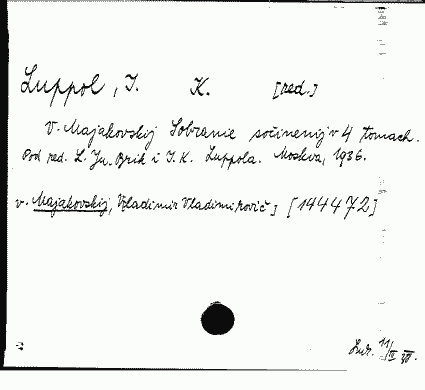 Luppol, I. K. [red.]
V. Majakovskij Sobranie sočinenij v 4 tomach.
Pod red. L. Ju. Brik i I. K. Luppola. Moskva, 1936.
v. Majakovskij, Vladimir Vladimirovič] [144472]